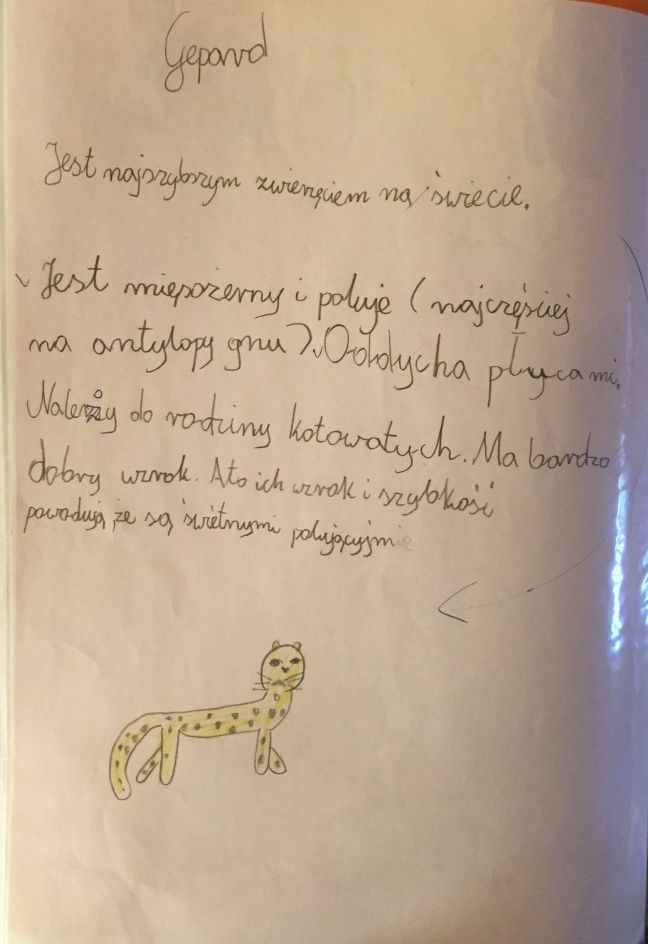 Gepard
Jest najszybszym zwierzęciem na świecie.
Jest mięsożerny i poluje (najczęściej
na antylopy gnu). Oddycha płucami.
Należy do rodziny kotowatych. Ma bardzo
dobry wzrok. Ato ich wzrok i szybkość
powodują, że są świetnymi polującymi